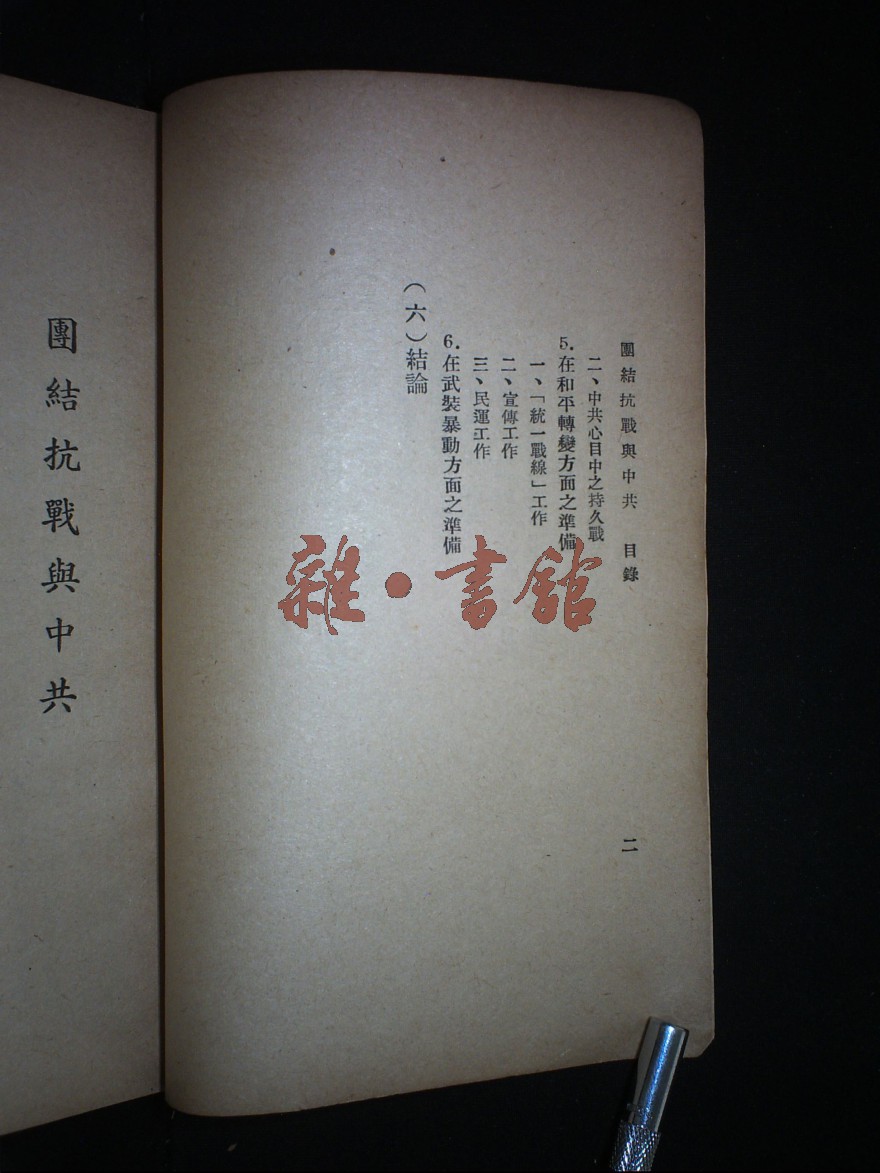 團結抗戰與中共　目錄　二
二、中共心目中之持久戰
5.在和平轉變方面之準備
一、「統一戰線」工作
二、宣傳工作
三、民運工作
6.在武裝暴動方面之準備
（六）結論
團結抗戰與中共
雜·書館